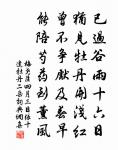 已過穀雨十六日
猶見牡丹開淺紅
曾不爭先及春早
能陪芍藥到薰風
梅堯臣四月三日張十
遺牡丹二朵詩詞典網集